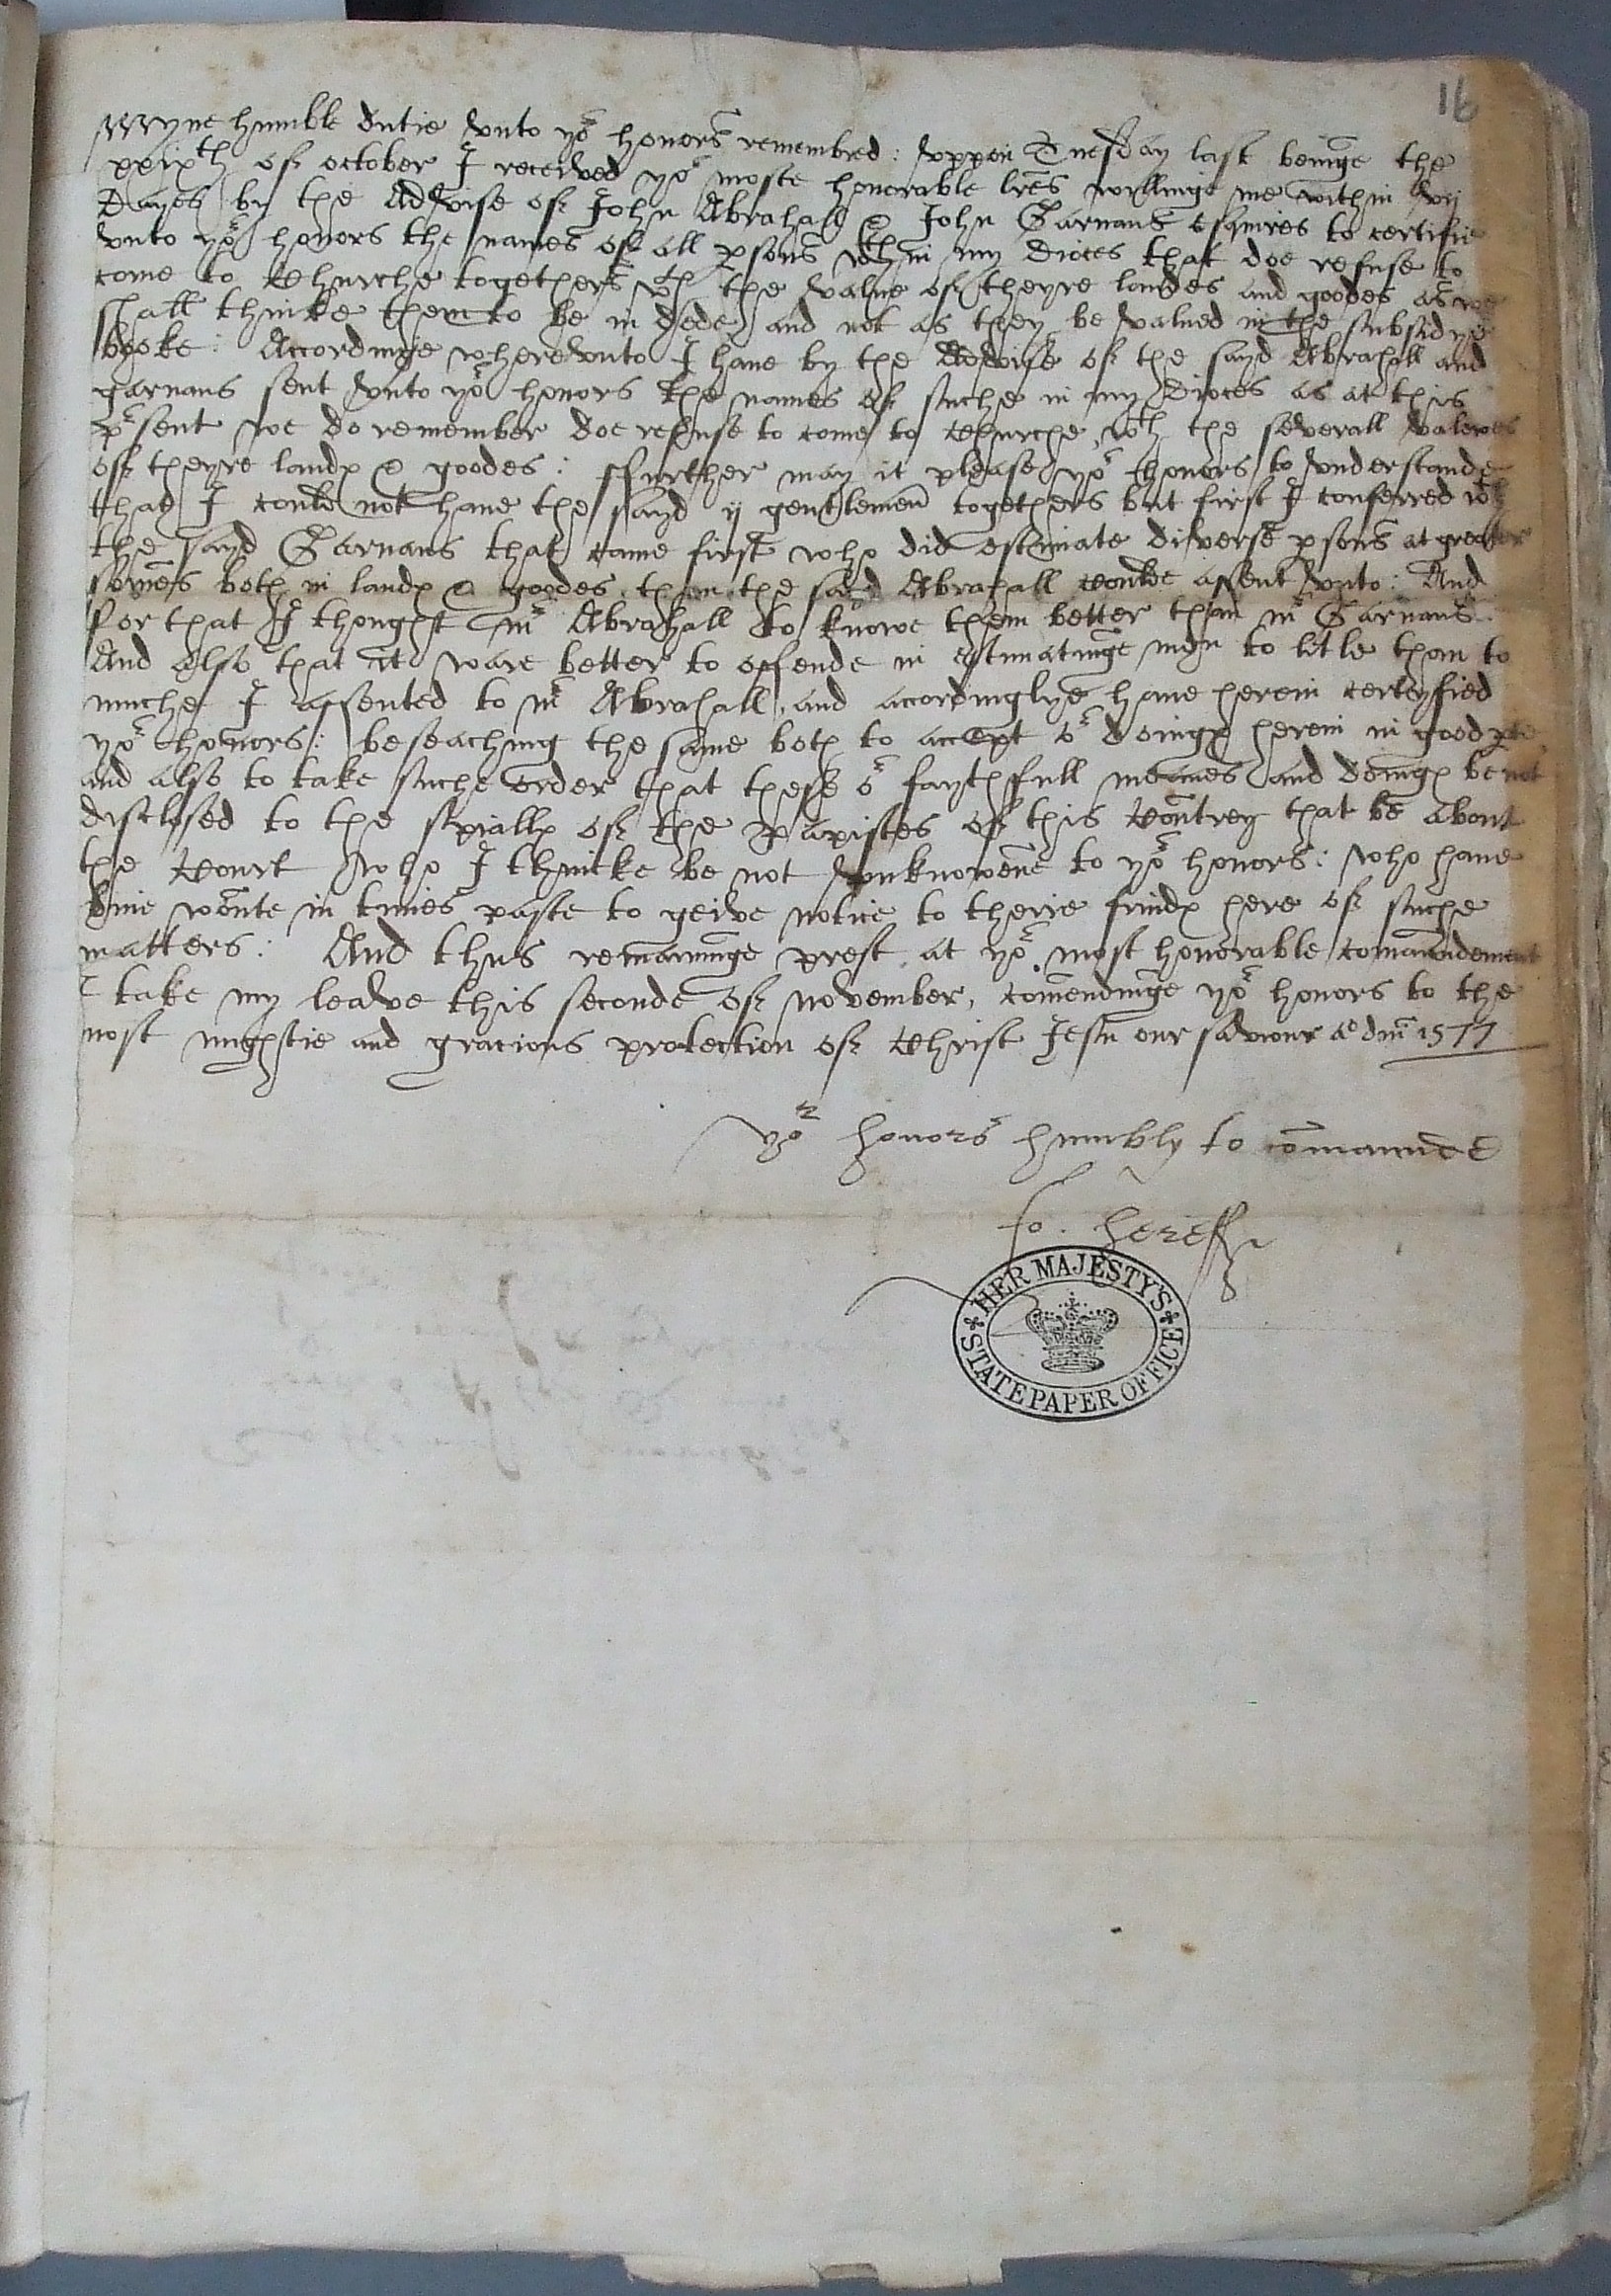 16
Myne humble dutie vnto yor honors remembred: vppon Tuesday last beinge the
xxixth of october I received yor moste honorable lres willinge me within vij
dayes by the Advise of John Abrahall & John Garnans esquires to certifie
vnto yor honors the names of all psons wthin my dioces that doe refuse to
come to Churche togethers wth the value of theyre landes and goodes as we
shall thinke them to be in dede and not as they be valued in the subsidye
booke: Accordinge wherevnto I haue by the Advise of the sayd Abrahall and
garnans sent vnto yor honors the names of suche in my Dioces as at this
psent we do remember doe refuse to come to Churche, wth the severall valewes
of theyre landes & goodes: ffurther may it please yor honors to vnderstande
that I could not haue the sayd ij gentlemen togethers but first I conferred wth
the sayd Garnans that came first who did estimate diverse psons at greater
somes both in landes & goodes, than the sayd Abrahall woulde assent vnto: And
for that I thought mr Abrahall to knowe them better than mr Garnans.
And also that it ware better to offende in estimatinge men to litle than to
muche I assented to mr Abrahall, and accordinglye haue herein certeyfied
yor honors: beseaching the same both to accept or doinges herein in good pte
and also to take suche order that these or faythfull meanes and doinges be not
disclosed to the spialles of the Papistes of this Contrey that be about
the Court who I thincke be not vnknowene to yor honors: who haue
bine wonte in times paste to geive notice to theire frindes here of suche
matters: And thus remaininge prest at yor most honorable comaundement
I take my leave this seconde of november, comendinge yor honors to the
most mightie and gracious protection of Christ Jesu our saviour ao dni 1577
Yor honors humbly to comaunde
Jo. Hereff
HER MAJESTY'S STATE PAPER OFFICE